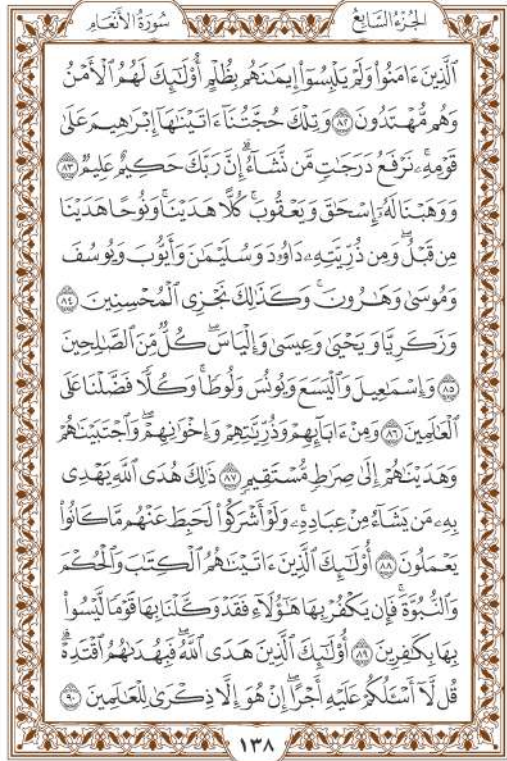 الجُزْءُ السَّابِعُ
سُورَةُ الأَنْعَامِ
ٱلَّذِينَ ءَامَنُواْ وَلَمْ يَلْبِسُوٓاْ إِيمَٰنَهُم بِظُلْمٍ أُوْلَٰٓئِكَ لَهُمُ ٱلْأَمْنُ
وَهُم مُّهْتَدُونَ ٨٢ وَتِلْكَ حُجَّتُنَآ ءَاتَيْنَٰهَآ إِبْرَٰهِيمَ عَلَىٰ
قَوْمِهِۦۚ نَرْفَعُ دَرَجَٰتٍ مَّن نَّشَآءُۗ إِنَّ رَبَّكَ حَكِيمٌ عَلِيمٌ ٨٣
وَوَهَبْنَا لَهُۥٓ إِسْحَٰقَ وَيَعْقُوبَۚ كُلًّا هَدَيْنَاۚ وَنُوحًا هَدَيْنَا
مِن قَبْلُۖ وَمِن ذُرِّيَّتِهِۦ دَاوُۥدَ وَسُلَيْمَٰنَ وَأَيُّوبَ وَيُوسُفَ
وَمُوسَىٰ وَهَٰرُونَۚ وَكَذَٰلِكَ نَجْزِى ٱلْمُحْسِنِينَ ٨٤
وَزَكَرِيَّا وَيَحْيَىٰ وَعِيسَىٰ وَإِلْيَاسَۖ كُلٌّ مِّنَ ٱلصَّٰلِحِينَ
٨٥ وَإِسْمَٰعِيلَ وَٱلْيَسَعَ وَيُونُسَ وَلُوطًاۚ وَكُلًّا فَضَّلْنَا عَلَى
ٱلْعَٰلَمِينَ ٨٦ وَمِنْ ءَابَآئِهِمْ وَذُرِّيَّٰتِهِمْ وَإِخْوَٰنِهِمْۖ وَٱجْتَبَيْنَٰهُمْ
وَهَدَيْنَٰهُمْ إِلَىٰ صِرَٰطٍ مُّسْتَقِيمٍ ٨٧ ذَٰلِكَ هُدَى ٱللَّهِ يَهْدِى
بِهِۦ مَن يَشَآءُ مِنْ عِبَادِهِۦۚ وَلَوْ أَشْرَكُواْ لَحَبِطَ عَنْهُم مَّا كَانُواْ
يَعْمَلُونَ ٨٨ أُوْلَٰٓئِكَ ٱلَّذِينَ ءَاتَيْنَٰهُمُ ٱلْكِتَٰبَ وَٱلْحُكْمَ
وَٱلنُّبُوَّةَۚ فَإِن يَكْفُرْ بِهَا هَٰٓؤُلَآءِ فَقَدْ وَكَّلْنَا بِهَا قَوْمًا لَّيْسُواْ
بِهَا بِكَٰفِرِينَ ٨٩ أُوْلَٰٓئِكَ ٱلَّذِينَ هَدَى ٱللَّهُۖ فَبِهُدَىٰهُمُ ٱقْتَدِهْۗ
قُل لَّآ أَسْـَٔلُكُمْ عَلَيْهِ أَجْرًاۖ إِنْ هُوَ إِلَّا ذِكْرَىٰ لِلْعَٰلَمِينَ ٩٠
١٣٨